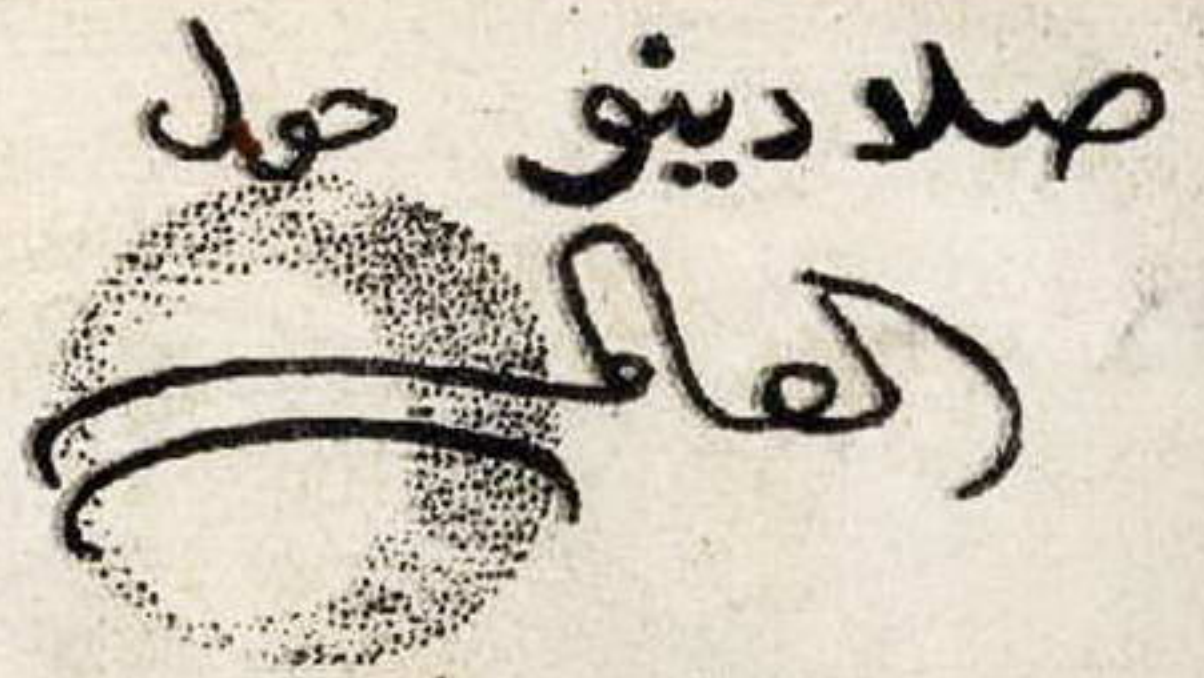 صلادينو حول
العالم